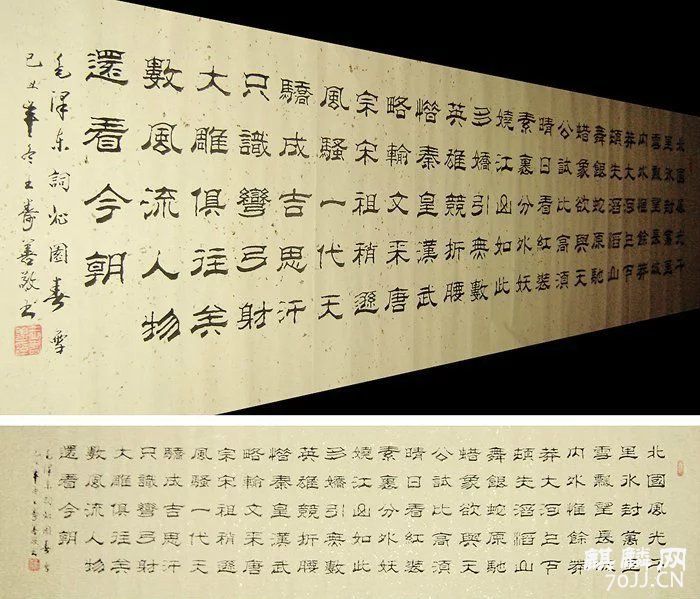 北國風光千
里冰封萬里
雪飄望長城
內外惟餘莽
莽大河上下
頓失滔滔山
舞銀蛇原馳
蜡象欲與天
公試比高須
晴日看紅裝
素裹分外妖
嬈江山如此
多嬌引無數
英雄競折腰
惜秦皇漢武
略輸文采唐
宗宋祖稍遜
風騷一代天
驕成吉思汗
只識彎弓射
大雕俱往矣
數風流人物
還看今朝
毛澤東詞沁園春雪
己丑年冬王壽善敬书
北國風光千
里冰封萬里
雪飄望長城
內外惟餘莽
莽大河上下
頓失滔滔山
舞銀蛇原馳
蜡象欲與天
公試比高須
晴日看紅裝
素裹分外妖
嬈江山如此
多嬌引無數
英雄競折腰
惜秦皇漢武
略輸文采唐
宗宋祖稍遜
風騷一代天
驕成吉思汗
只識彎弓射
大雕俱往矣
數風流人物
還看今朝
毛澤東詞沁園春雪
己丑年冬王壽善敬书
麒麟网
70JJ.CN